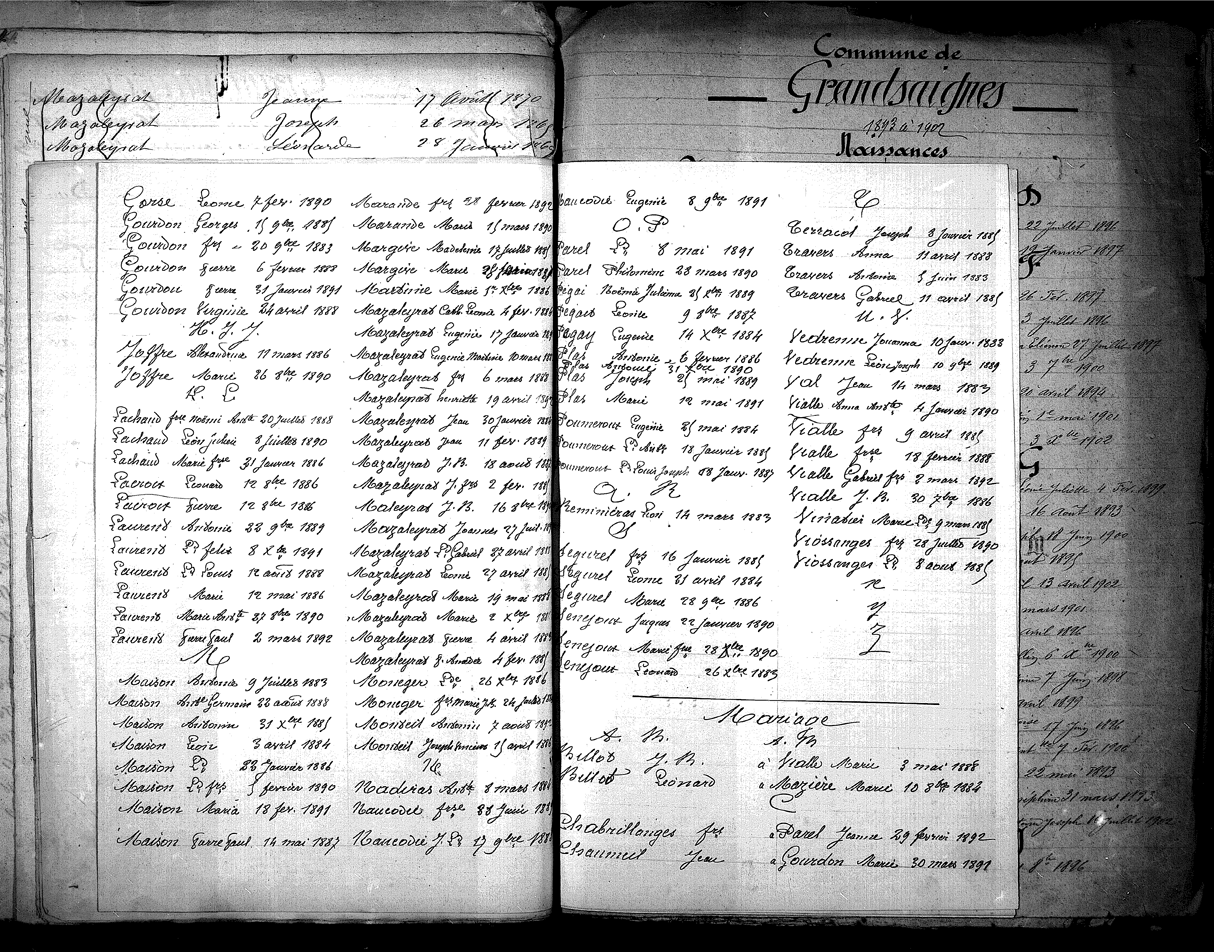 Mazaleyrat Jeanne 17 Août 1870
Mazaleyrat Joseph 26 mars
Mazaleyrat Léonarde 28 Janvier
Commune de
Grandsaignes
1893 à 1902
Naissances
Gorse Leonie 7 fev. 1890
Gourdon Georges 15 9bre 1885
Gourdon frs 20 9bre 1883
Gourdon Pierre 6 fevrier 1888
Gourdon Pierre 31 Janvier 1891
Gourdon Virginie 24 avril 1888
H. I. J.
Joffre Alexandrine 11 mars 1886
Joffre Marie 26 8bre 1890
K. L
Lachaud frse Noémi Antte 20 Juillet 1888
Lachaud Léon Julien 8 Juillet 1890
Lachaud Marie frse 31 Janvier 1886
Lacroix Leonard 12 8bre 1886
Lacroix Pierre 12 8bre 1886
Laurent Antonia 22 9bre 1889
Laurent Ld felix 8 Xbre 1891
Laurent Ld Louis 12 août 1888
Laurent Marie 12 mai 1886
Laurent Marie Antte 27 8bre 1890
Laurent Pierre Paul 2 mars 1892
M
Maison Antonia 9 Juillet 1883
Maison Antte Germaine 22 août 1888
Maison Antonin 31 Xbre 1885
Maison Leon 3 avril 1884
Maison Ld 23 Janvier 1886
Maison Ld frs 5 fevrier 1890
Maison Maria 18 fev. 1891
Maison Pierre Paul 14 mai 1887
Marande frs 28 fevrier 1892
Marande Marie 15 mars 1890
Margive Madeleine 17 Juillet
Margive Marie
Marsinie Marie 1er Xbre 1886
Mazaleyrat Cath Leonie 4 fev.
Mazaleyrat Eugenie 17 Janvier
Mazaleyrat Eugenie 10 mars
Mazaleyrat frs 6 mars
Mazaleyrat henriette 19 avril
Mazaleyrat Jean 30 Janvier
Mazaleyrat Jean 11 fev.
Mazaleyrat J.B. 18 août
Mazaleyrat J. frs 2 fev.
Maleyrat J.B. 16 8bre
Mazaleyrat Joannes 27 Juil.
Mazaleyrat Ld Gabriel 27 avril
Mazaleyrat Leonie 27 avril
Mazaleyrat Marie 19 mai
Mazaleyrat Marie 2 Xbre
Mazaleyrat Pierre 4 avril
Mazaleyrat P. Amédée 4 fev.
Moneger Lde 26 Xbre 1886
Moneger frs Marie Js 24 Juillet
Monteil Antonin 7 août
Monteil Joseph Vincent 15 avril
N
Naderas Antte 8 mars
Naucodie frse 23 Juin
Naucodie J. Ld 17 9bre
Naucodie Eugenie 8 9bre 1891
O. P
Parel Ld 8 mai 1891
Parel Philomène 23 mars 1890
Noémi Juliana 25 Xbre 1889
Leonie 9 8bre 1887
Eugenie 14 Xbre 1884
Plas Antonie 6 fevrier 1886
Plas 31 Xbre 1890
Plas Joseph 21 mai 1889
Plas Marie 12 mai 1891
Eugenie 25 mai 1884
Ld Antte 18 Janvier 1885
Ld Louis Joseph 28 Janv. 1887
Q. R
Reminieras Leon 14 mars 1883
S
Segurel frs 16 Janvier 1885
Segurel Leonie 21 avril 1884
Segurel Marie 28 9bre 1886
Senejoux Jacques 22 Janvier 1890
Senejoux Marie frse 28 Xbre 1890
Senejoux Leonard 26 Xbre 1883
T
Terracol Joseph 8 Janvier 1885
Travers Anna 11 avril 1888
Travers Antonia 5 Juin 1883
Travers Gabriel 11 avril 1885
U. V.
Vedrenne Joanna 10 Janv. 1888
Vedrenne Léon Joseph 10 9bre 1889
Val Jean 14 mars 1883
Vialle Anna Antte 4 Janvier 1890
Vialle frs 9 avril 1885
Vialle frse 18 fevrier 1888
Vialle Gabriel frs 2 mars 1892
Vialle J. B. 30 7bre 1886
Vinatier Marie Lde 9 mars 1885
Viossanges frs 28 Juillet 1890
Viossanges Ld 8 août 1885
X
Y
Z
Mariage
A. B. A. B
Billot J. B. à Vialle Marie 3 mai 1888
Billot Léonard à Mazière Marie 10 8bre 1884
C
Chabrillanges frs à Parel Jeanne 29 fevrier 1892
Chaumeil Jean à Gourdon Marie 30 mars 1891
22 Juillet 1896
Janvier 1897
26 Fév. 1897
3 Juillet 1896
27 Juillet 1897
3 7bre 1900
20 avril 1894
1er mai 1901
3 Xbre 1902
G
Juliette 4 Fév. 1899
16 Août 1893
Juin 1900
1895
13 avril 1902
mars 1901
avril 1896
6 Xbre 1900
7 Juin 1898
avril 1899
17 Juin 1896
7 Fév. 1900
22 mai 1893
31 mars 1893
Joseph Juillet 1902
8bre 1896